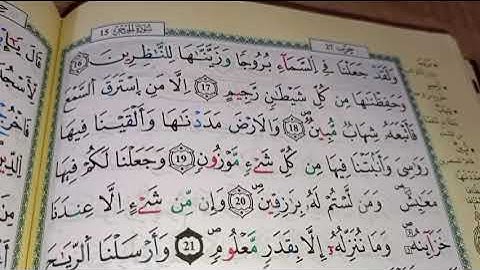 حزب 27 سُورَةُ الحِجْرِ 15
وَلَقَدْ جَعَلْنَا فِے اِ۬لسَّمَآءِ بُرُوجاٗ وَزَيَّنَّٰهَا لِلنَّٰظِرِينَ 16
وَحَفِظْنَٰهَا مِن كُلِّ شَيْطَٰنٖ رَّجِيمٍ 17 اِلَّا مَنِ اِ۪سْتَرَقَ اَ۬لسَّمْعَ
فَأَتْبَعَهُۥ شِهَابٞ مُّبِينٞۖ 18 وَالَارْضَ مَدَدْنَٰهَا وَأَلْقَيْنَا فِيهَا
رَوَٰسِيَ وَأَنۢبَتْنَا فِيهَا مِن كُلِّ شَےْءٖ مَّوْزُونٖۖ 19 وَجَعَلْنَا لَكُمْ فِيهَا
مَعَٰيِشَۖ وَمَن لَّسْتُمْ لَهُۥ بِرَٰزِقِينَۖ 20 وَإِن مِّن شَےْءٍ اِلَّا عِندَنَا
خَزَآئِنُهُۥۖ وَمَا نُنَزِّلُهُۥٓ إِلَّا بِقَدَرٖ مَّعْلُومٖۖ 21 وَأَرْسَلْنَا اَ۬لرِّيَٰحَ